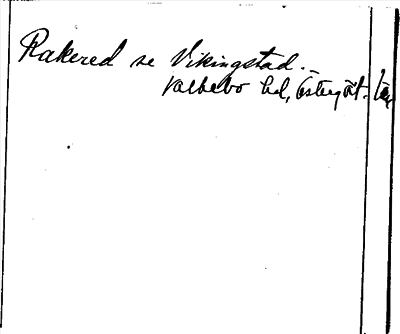 Rakered se Vikingstad.
Valkebo hd, Östergöt. län